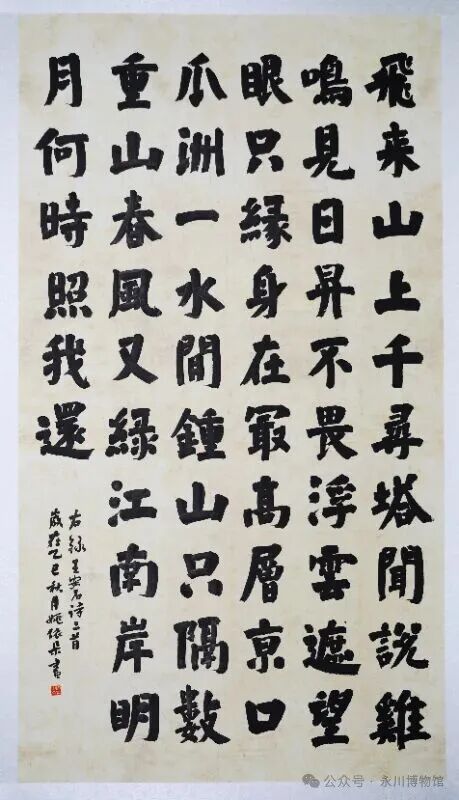 飛来山上千尋塔聞說雞
鳴見日昇不畏浮雲遮望
眼只緣身在冣高層京口
瓜洲一水間鍾山只隔數
重山春風又綠江南岸明
月何時照我還
右録王安石詩二首
歲在乙巳秋月姚依書
公众号 · 永川博物馆